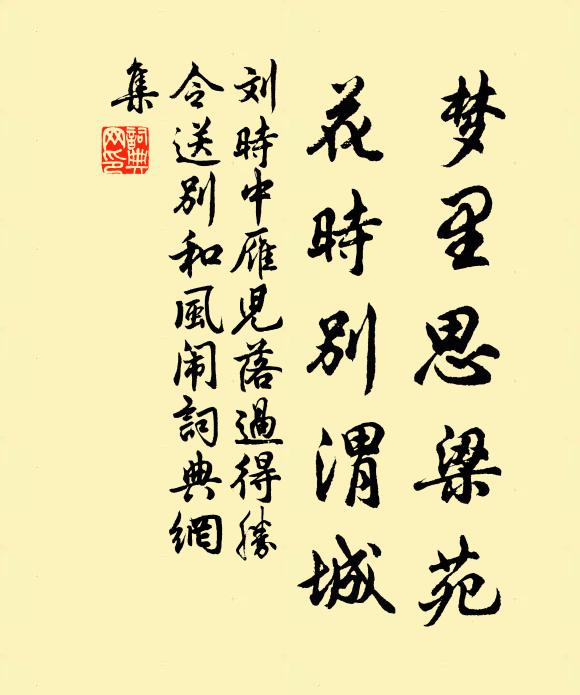 梦里思梁苑
花時别渭城
刘時中雁兒落過得勝
令送别和風闹詞典網
集
詞典網印